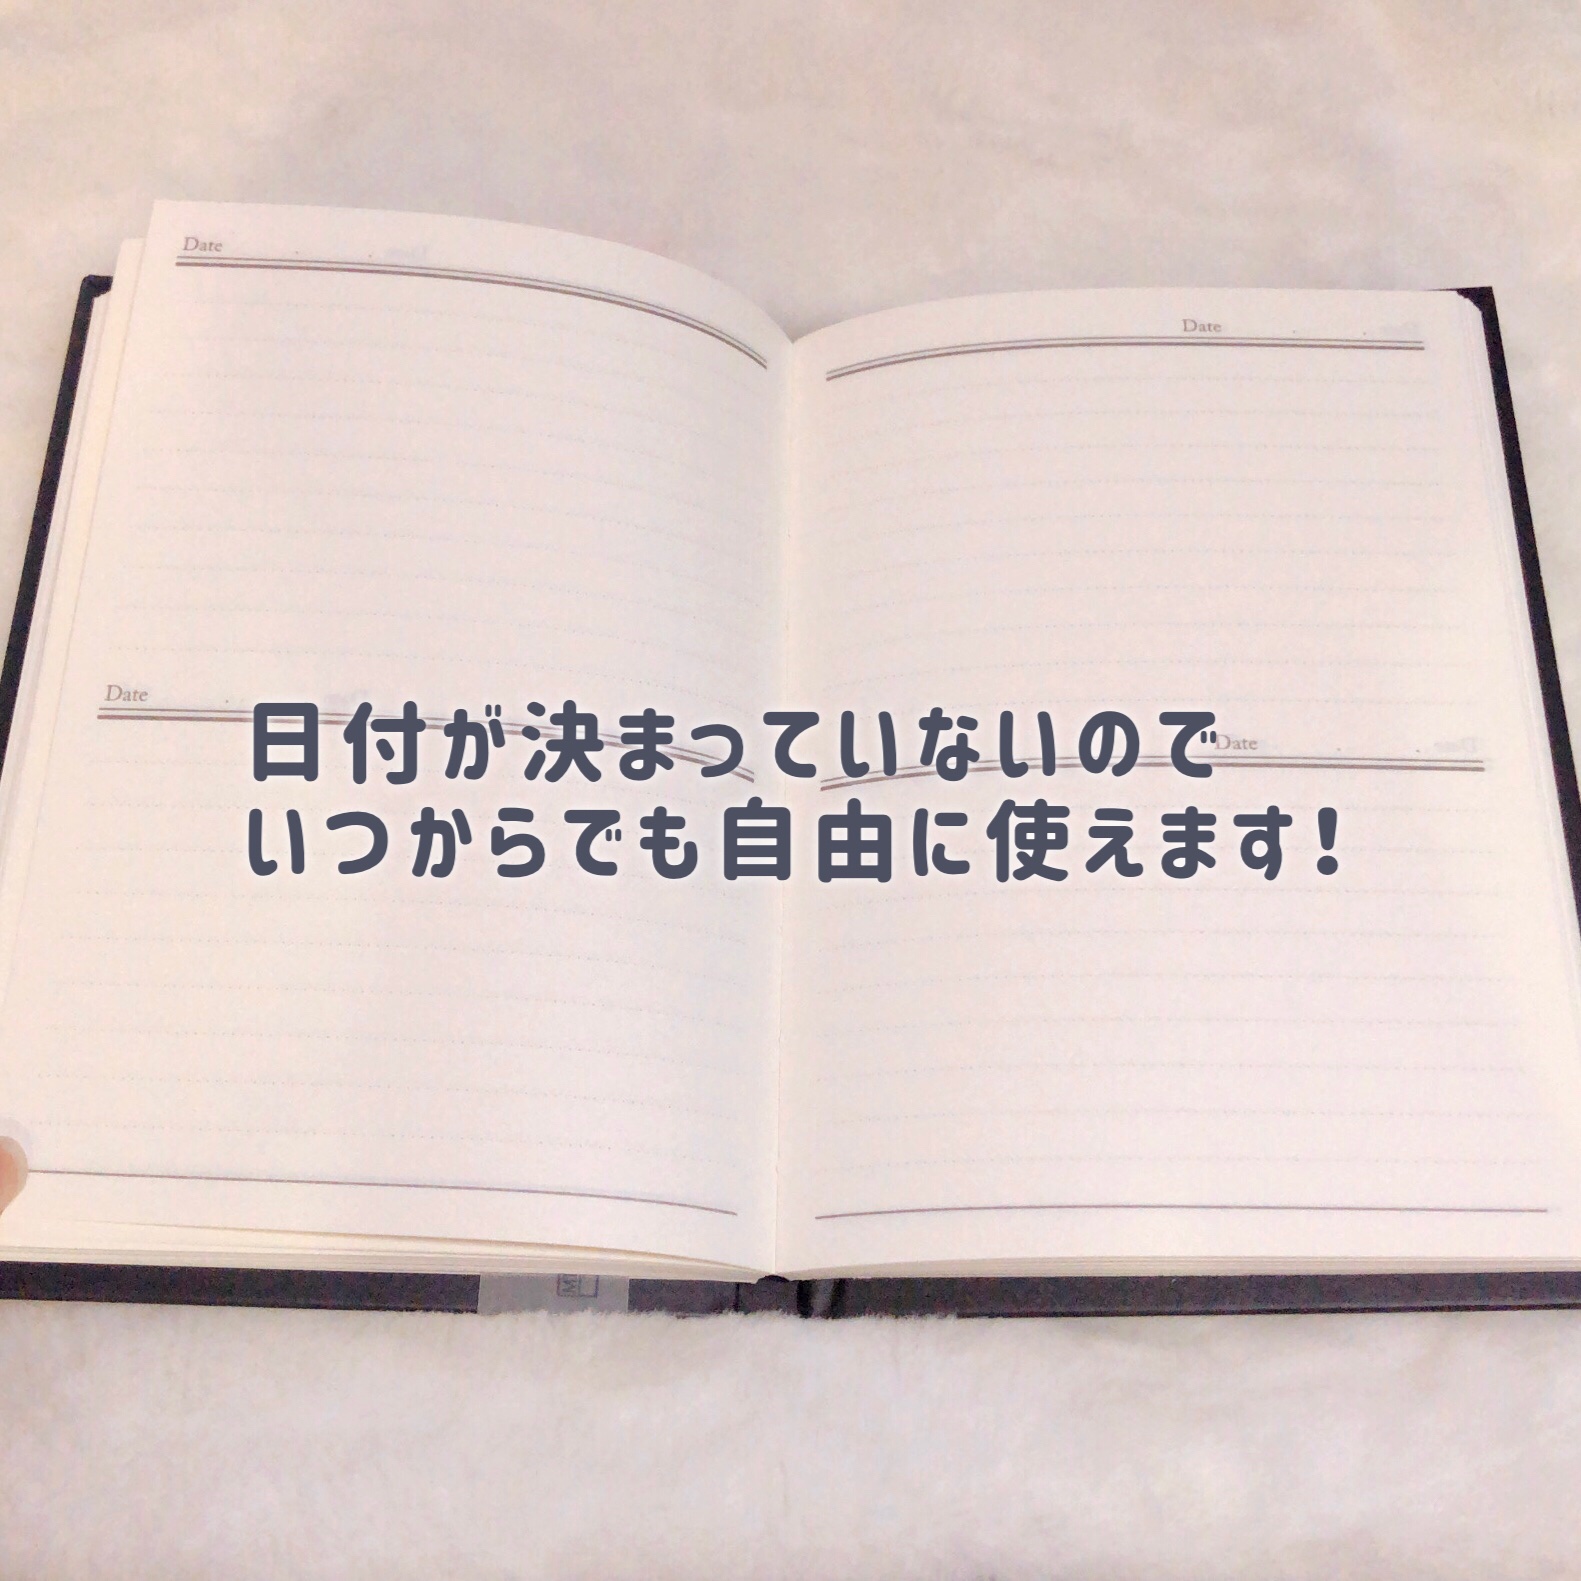 Date
Date
Date
日付が決まっていないので
Date
いつからでも自由に使えます!